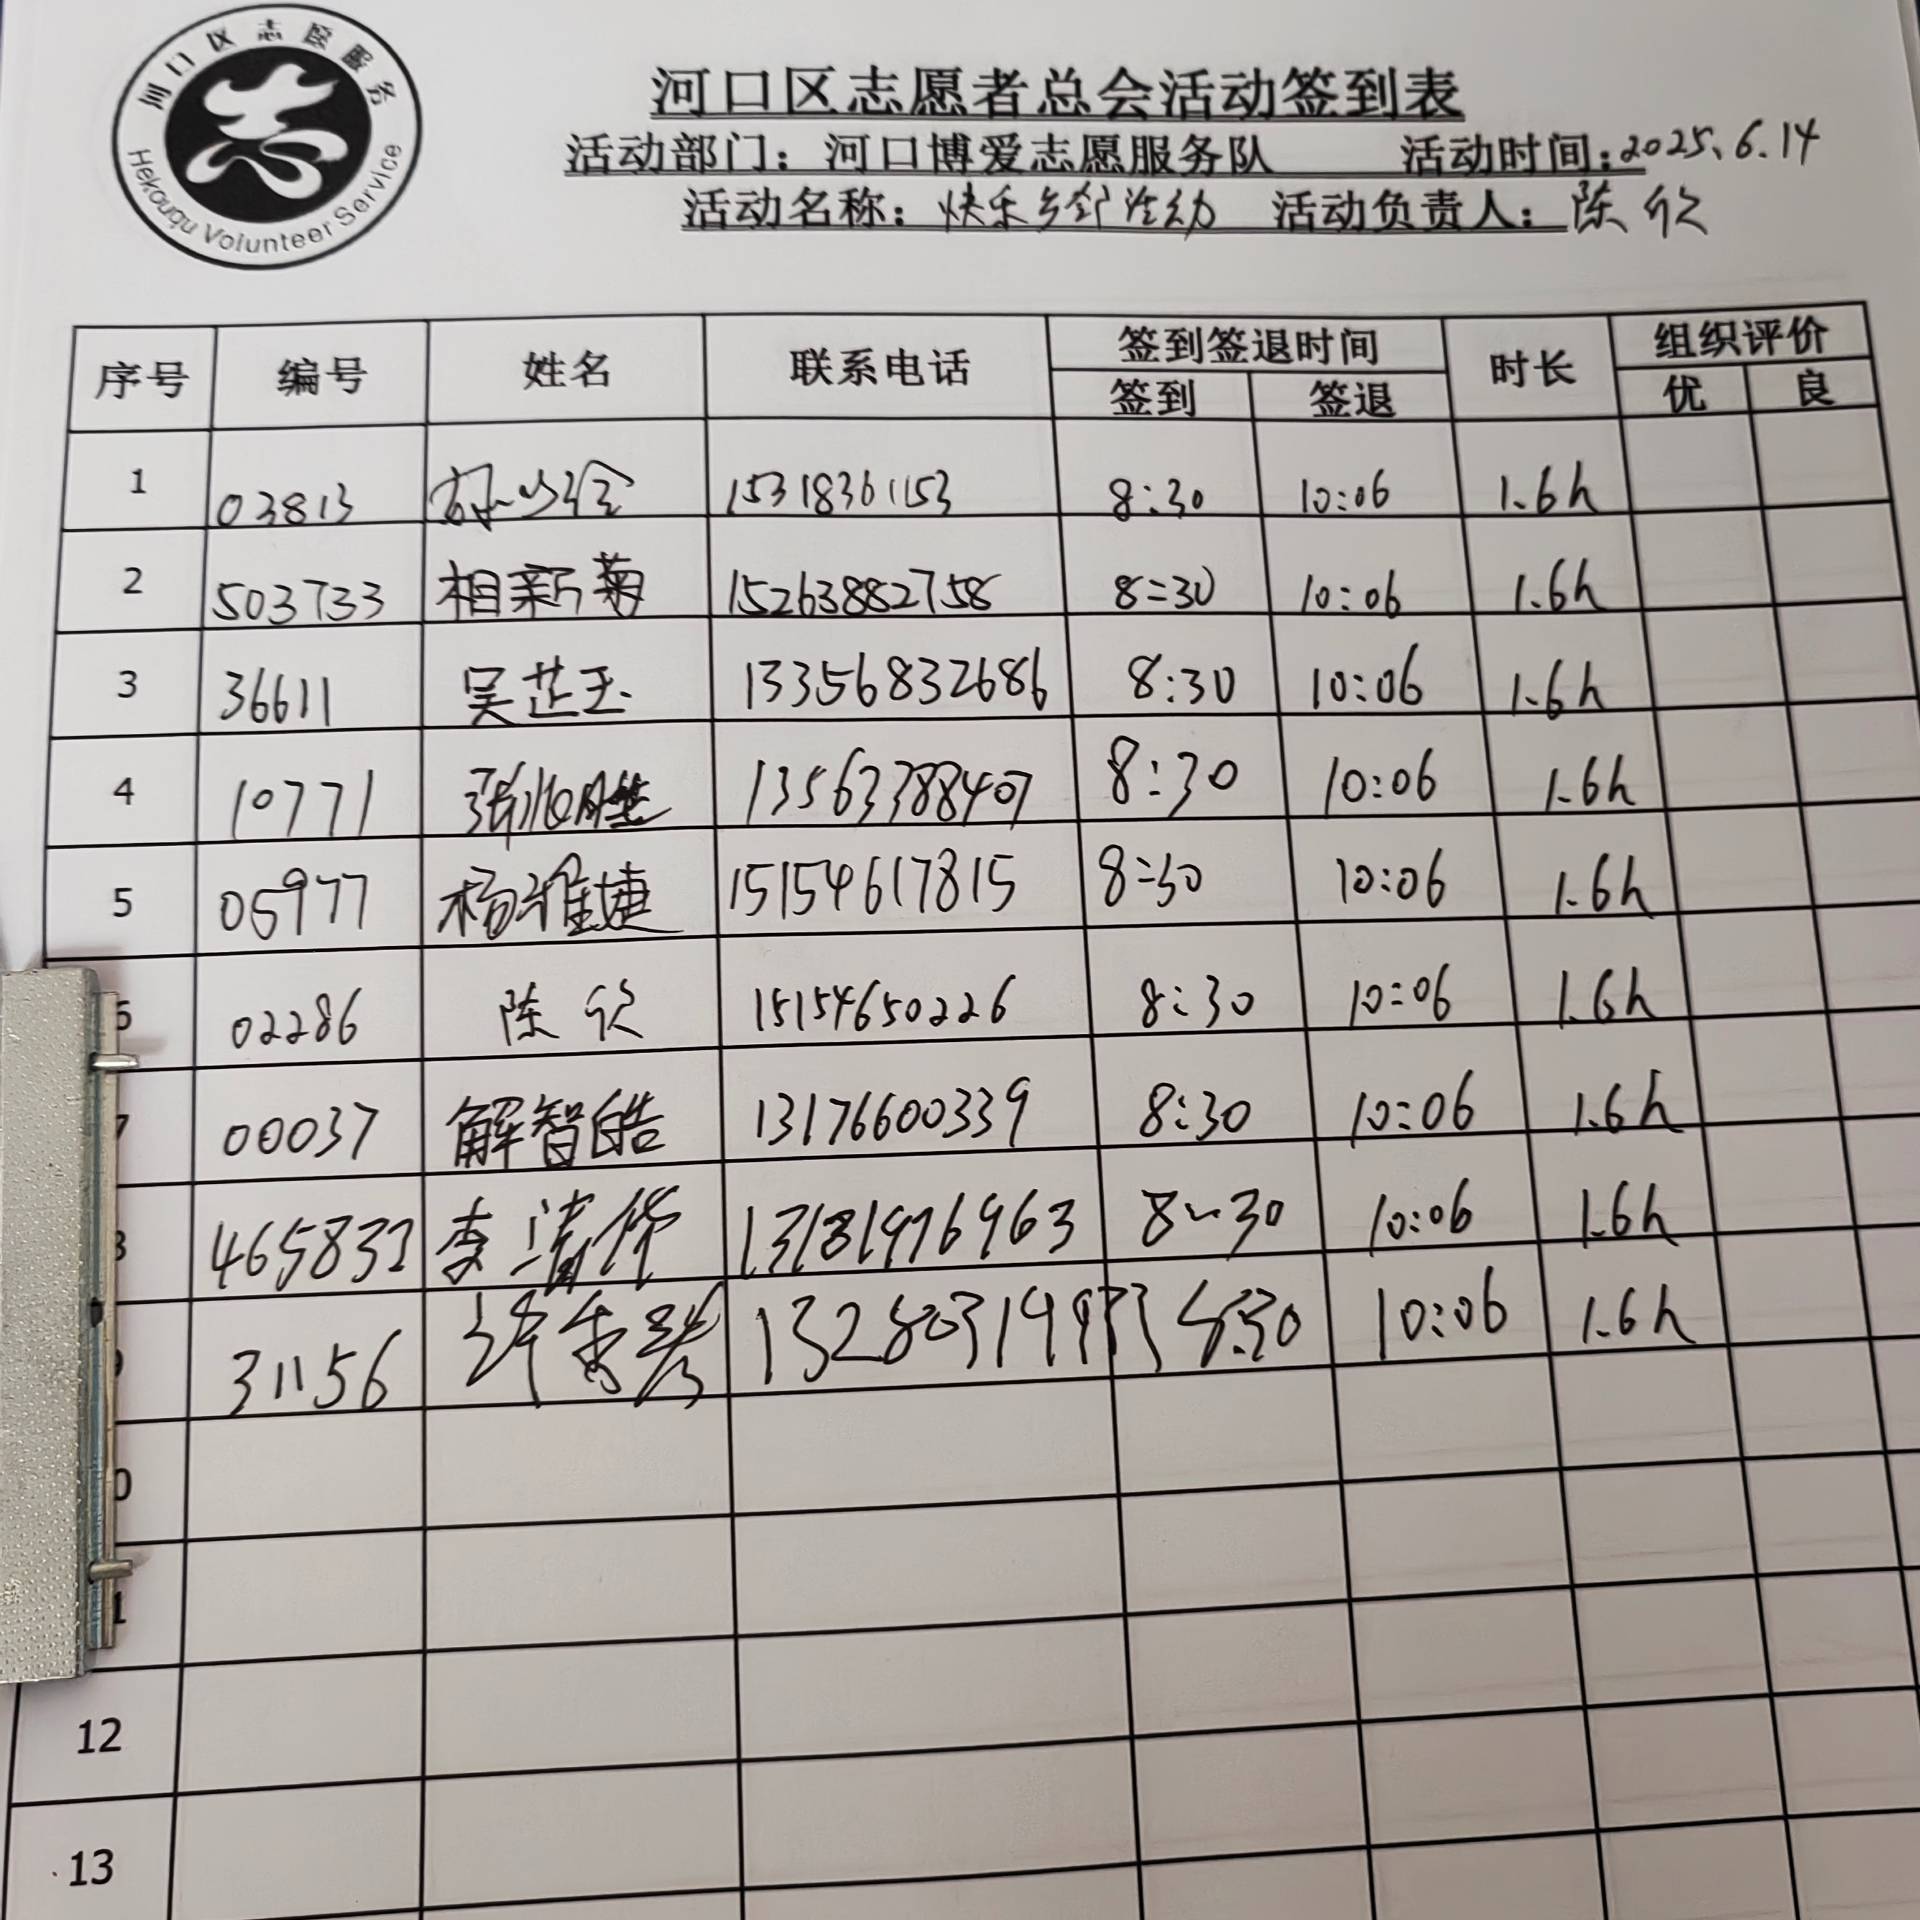 河口区志愿服务
Hekouqu Volunteer Service
河口区志愿者总会活动签到表
活动部门：河口博爱志愿服务队 活动时间：2025.6.14
活动名称：快乐乡村活动 活动负责人：陈欣
序号 编号 姓名 联系电话 签到签退时间 时长 组织评价
签到 签退 优 良
1 03813 15318361153 8:30 10:06 1.6h
2 503733 相新菊 15263882758 8:30 10:06 1.6h
3 36611 吴芷玉 13356832686 8:30 10:06 1.6h
4 10771 张顺胜 13563788407 8:30 10:06 1.6h
5 05977 杨雅捷 15154617815 8:30 10:06 1.6h
6 02286 陈欣 15154650226 8:30 10:06 1.6h
7 00037 解智皓 13176600339 8:30 10:06 1.6h
8 465832 李清华 13181976963 8:30 10:06 1.6h
9 31156 许 8:30 10:06 1.6h
0
1
12
13